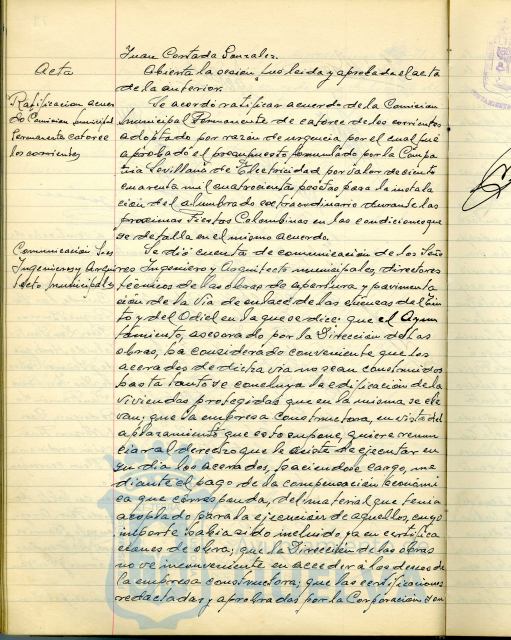 Juan Cortada Gonzalez.
Acta
Abierta la sesión fue leida y aprobada el acta
de la anterior.
Ratificacion acuer
do Comision municipal
Permanente catorce
los corrientes
Se acordó ratificar acuerdo de la Comision
municipal Permanente de catorce de los corrientes
adoptado por razón de urgencia por el cual fué
aprobado el presupuesto formulado por la Compa
ñia Sevillana de Electricidad por valor de ciento
cuarenta mil cuatrocientas pesetas para la instala
ción del alumbrado extraordinario durante las
proximas Fiestas Colombinas en las condiciones que
se detalla en el mismo acuerdo.
Comunicación Sres
Ingenieros y Arqui
tecto municipales
Se dió cuenta de comunicación de los Seño
res Ingeniero y Arquitecto municipales, directores
técnicos de las obras de apertura y pavimenta
ción de la Via de enlace de las del Tin
to y del Odiel en la que se dice: que el Ayun
tamiento, asesorado por la Dirección de las
obras, ha considerado conveniente que los
acerados de dicha via no sean construidos
hasta tanto se concluya la edificación de la
viviendas protegidas que en la misma se ele
van; que la empresa constructora, en vista del
aplazamiento que esto supone, quiere renun
ciar al derecho que le asiste de ejecutar en
su dia los acerados, haciendose cargo, me
diante el pago de la compensación económi
ca que corresponda, del material que tenia
acoplado para la ejecución de aquellos, cuyo
importe habia sido incluido ya en certifica
ciones de obra; que la Dirección de las obras
no ve inconveniente en acceder á los deseos de
la empresa constructora; que las certificaciones
redactadas y aprobadas por la Corporación y en